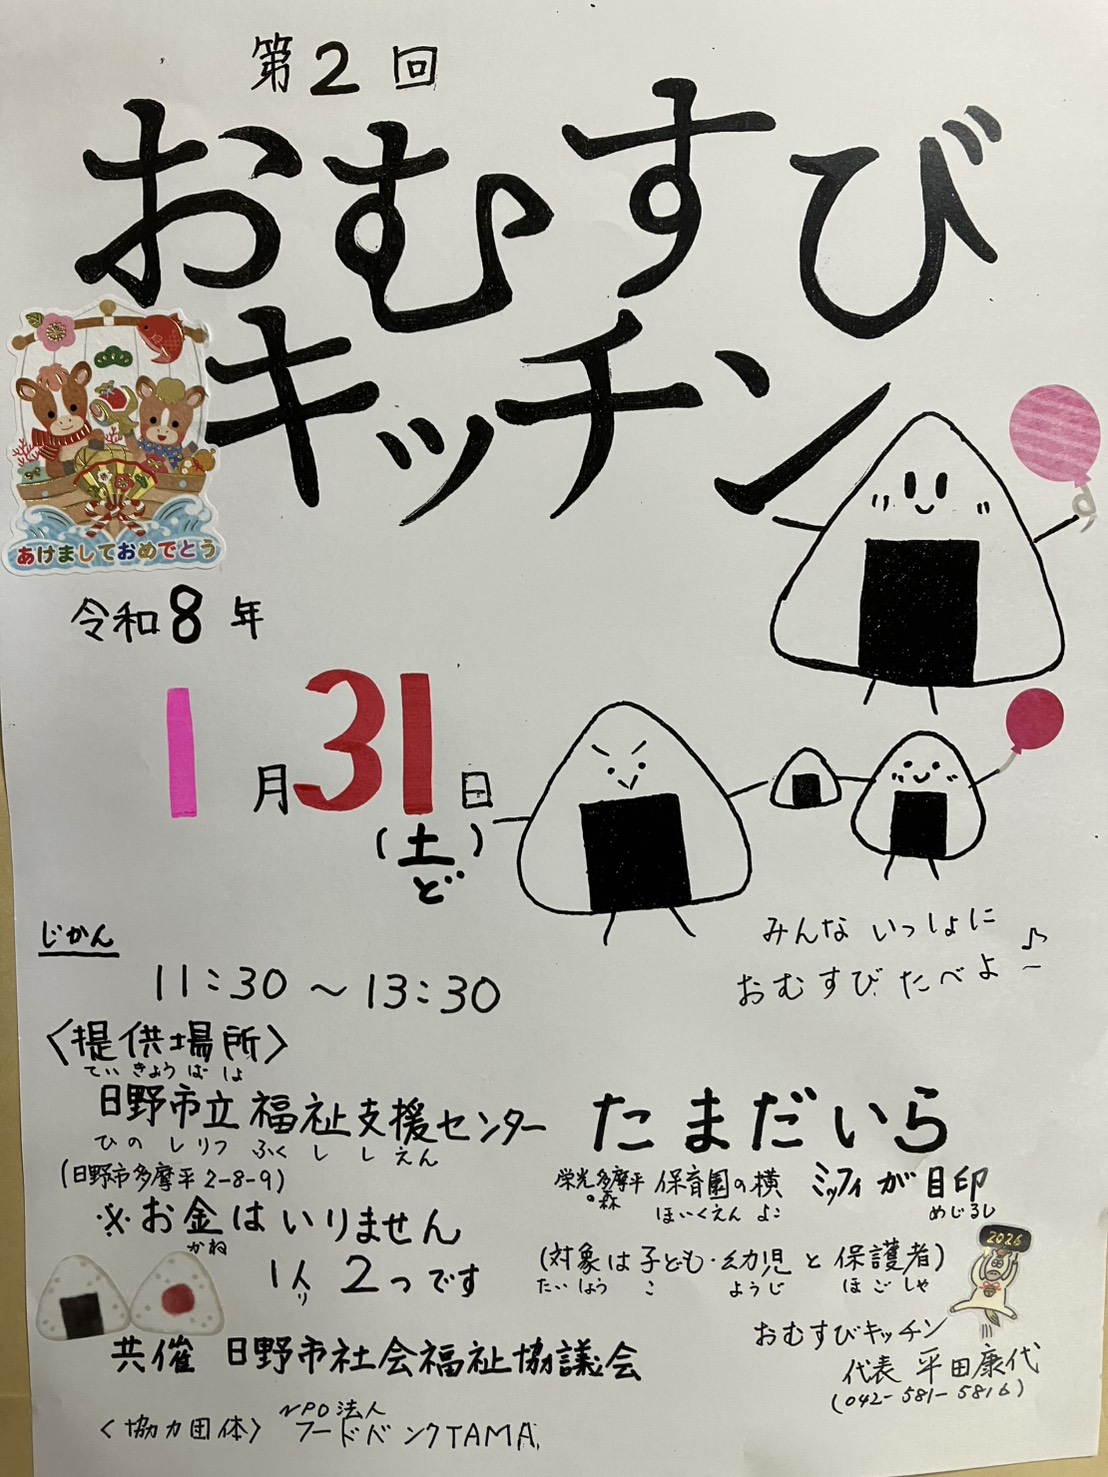 第2回
おむすび
キッチン
あけましておめでとう
令和8年
1月31日
(土)
ど
みんな いっしょに
おむすび たべよ～♪
じかん
11:30～13:30
〈提供場所〉
ていきょうばしょ
日野市立福祉支援センター たまだいら
ひのしりつ ふくししえん
(日野市多摩平2-8-9)
栄光多摩平の森 保育園の横 ミッフィが目印
ほいくえん よこ めじるし
※お金はいりません
かね
1人 2つです
り
(対象は子ども・幼児と保護者)
たいしょう こ ようじ ほごしゃ
2026
共催 日野市社会福祉協議会
おむすびキッチン
代表 平田康代
(042-581-5816)
〈協力団体〉 NPO法人
フードバンクTAMA